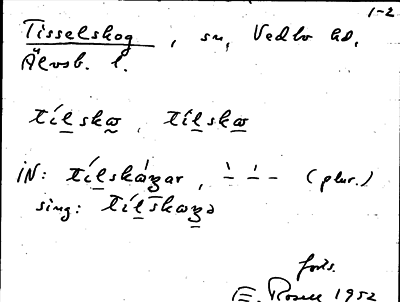 1-2
Tisselskog, sn, Vedbo hd,
Älvsb. l.
tı́lskω, tı́lskω
IN: tı́lskʒar, ̀- ́- - (plur.)
sing: tı́lskωʒə
forts.
E. Rosell 1952